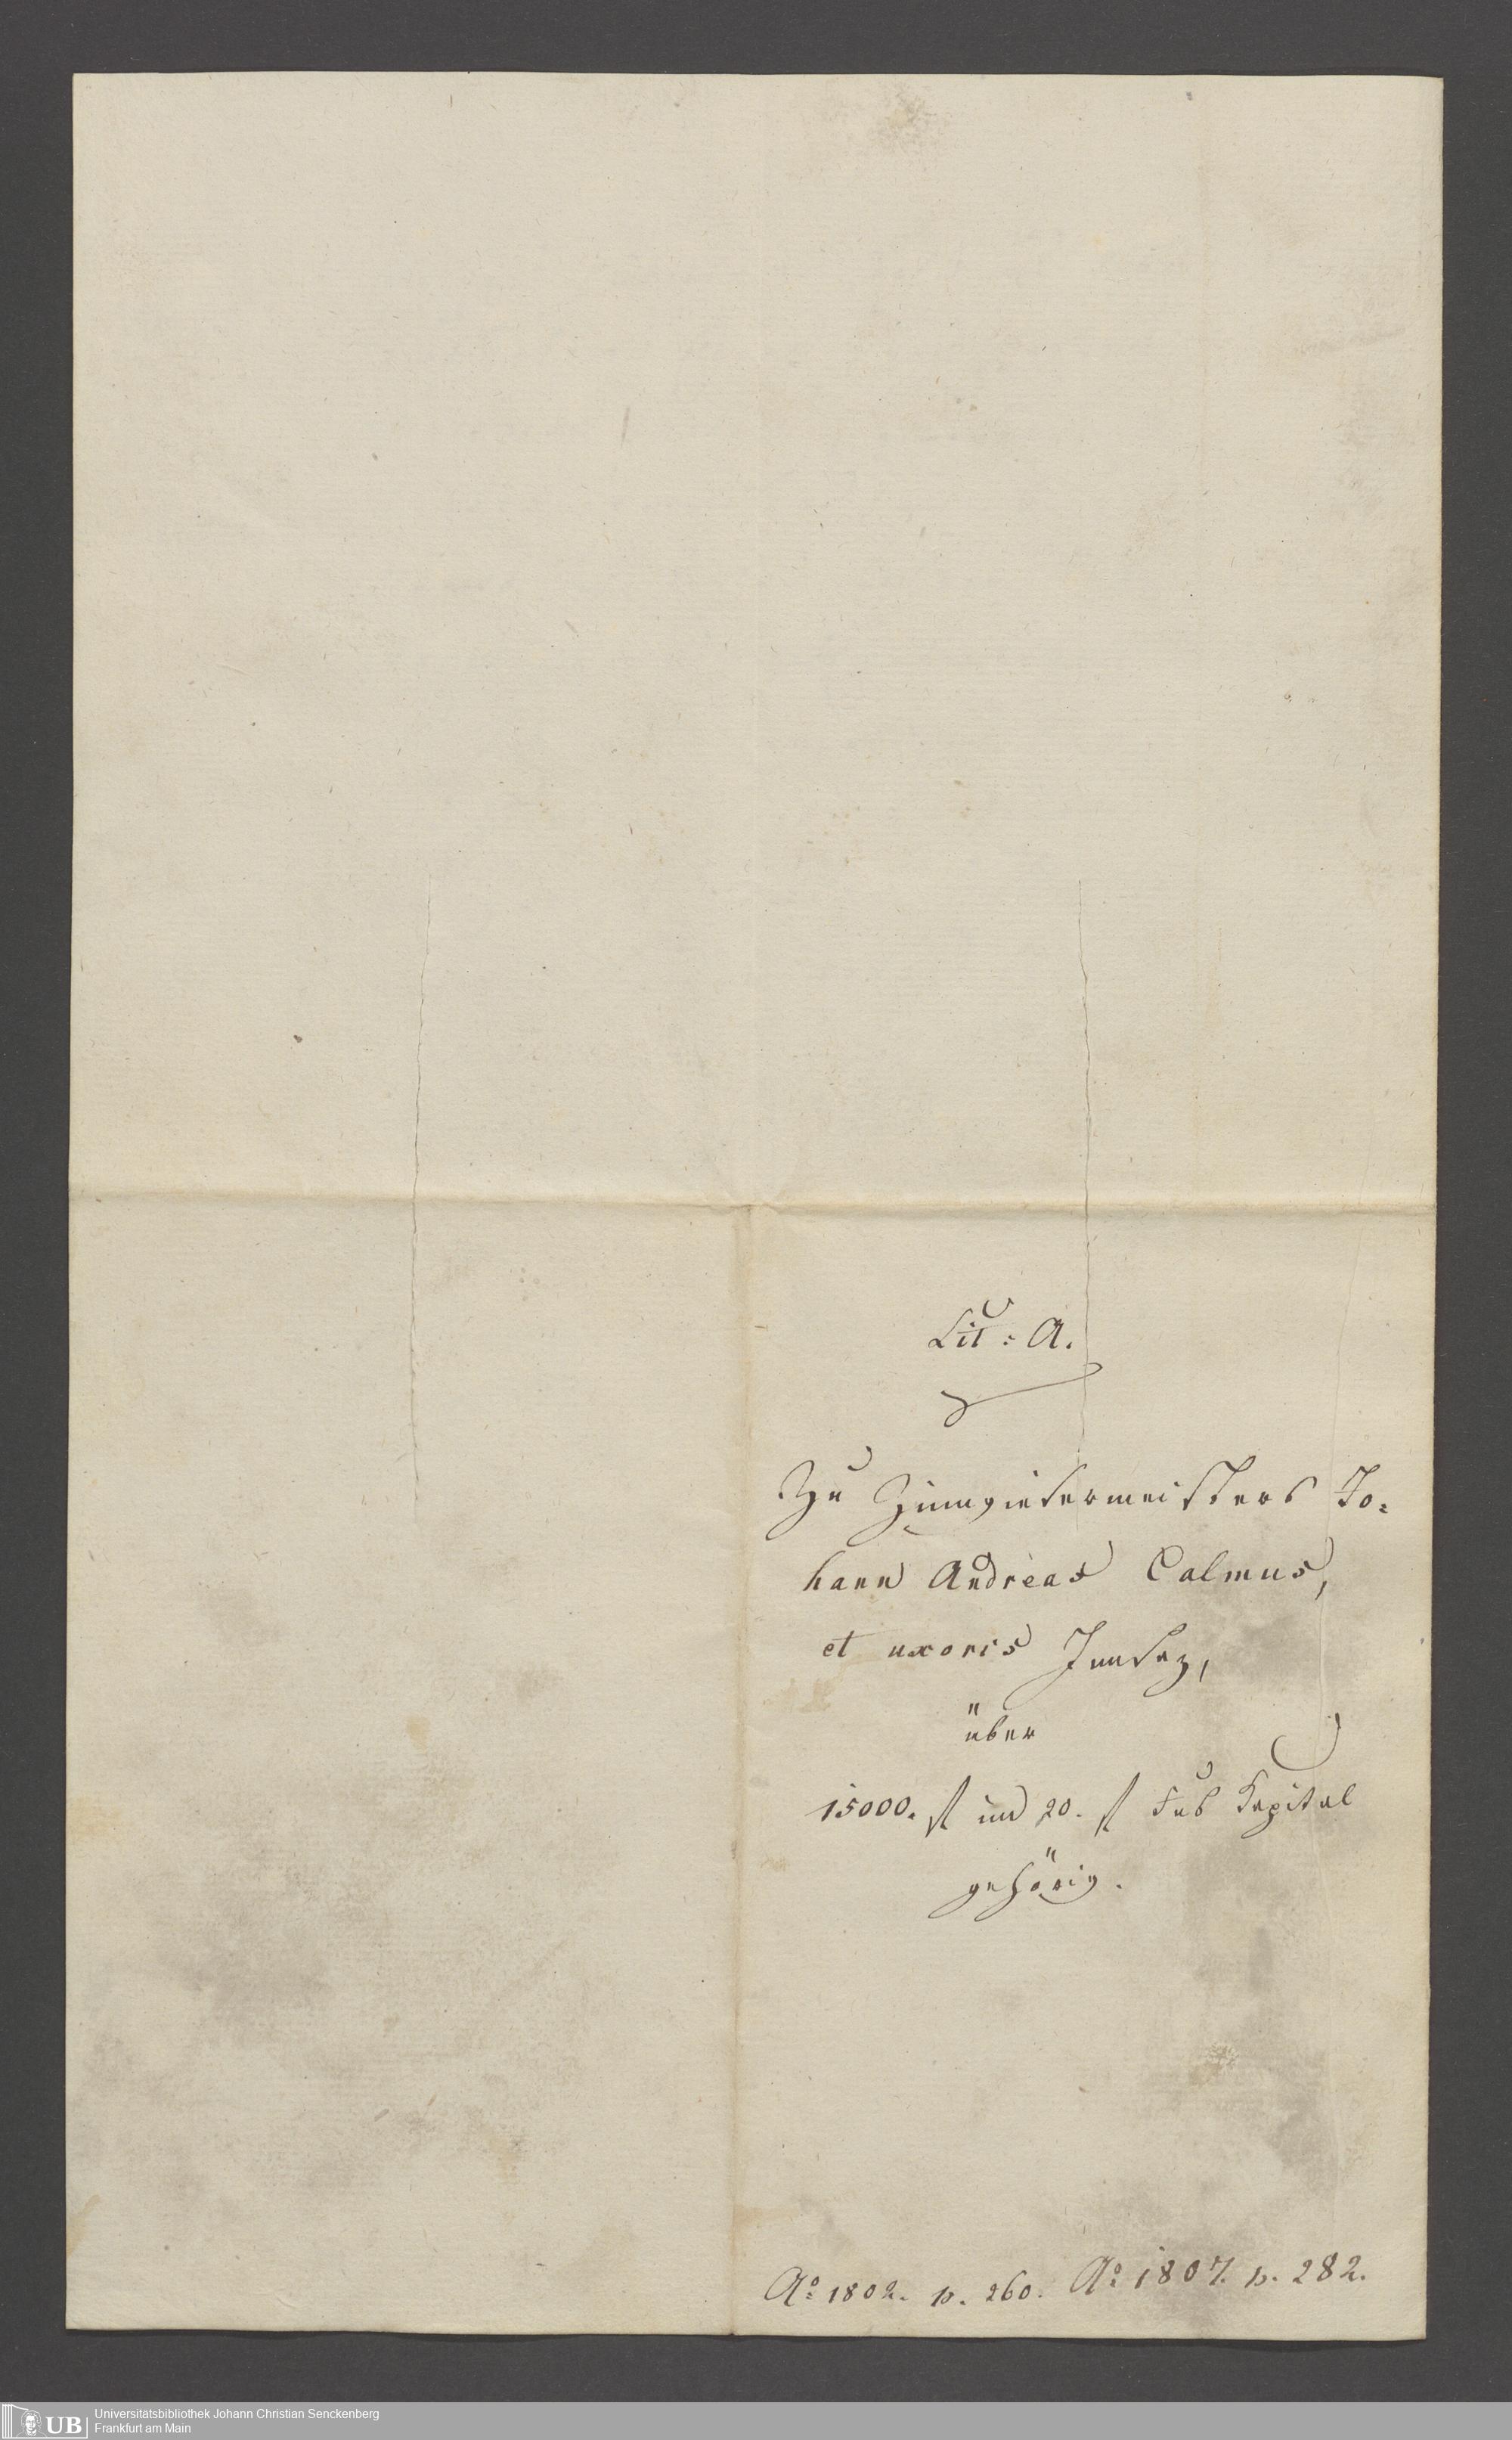 Lit: A.
Zu Zinngiesermeisters Jo=
hann Andreas Calmus,
et uxoris Innsaz,
über
15000. fl im 20. fl Fus Kapital
gehörig.
Ao: 1802. p. 260. Ao: 1807. p. 282.
UB Universitätsbibliothek Johann Christian Senckenberg
Frankfurt am Main